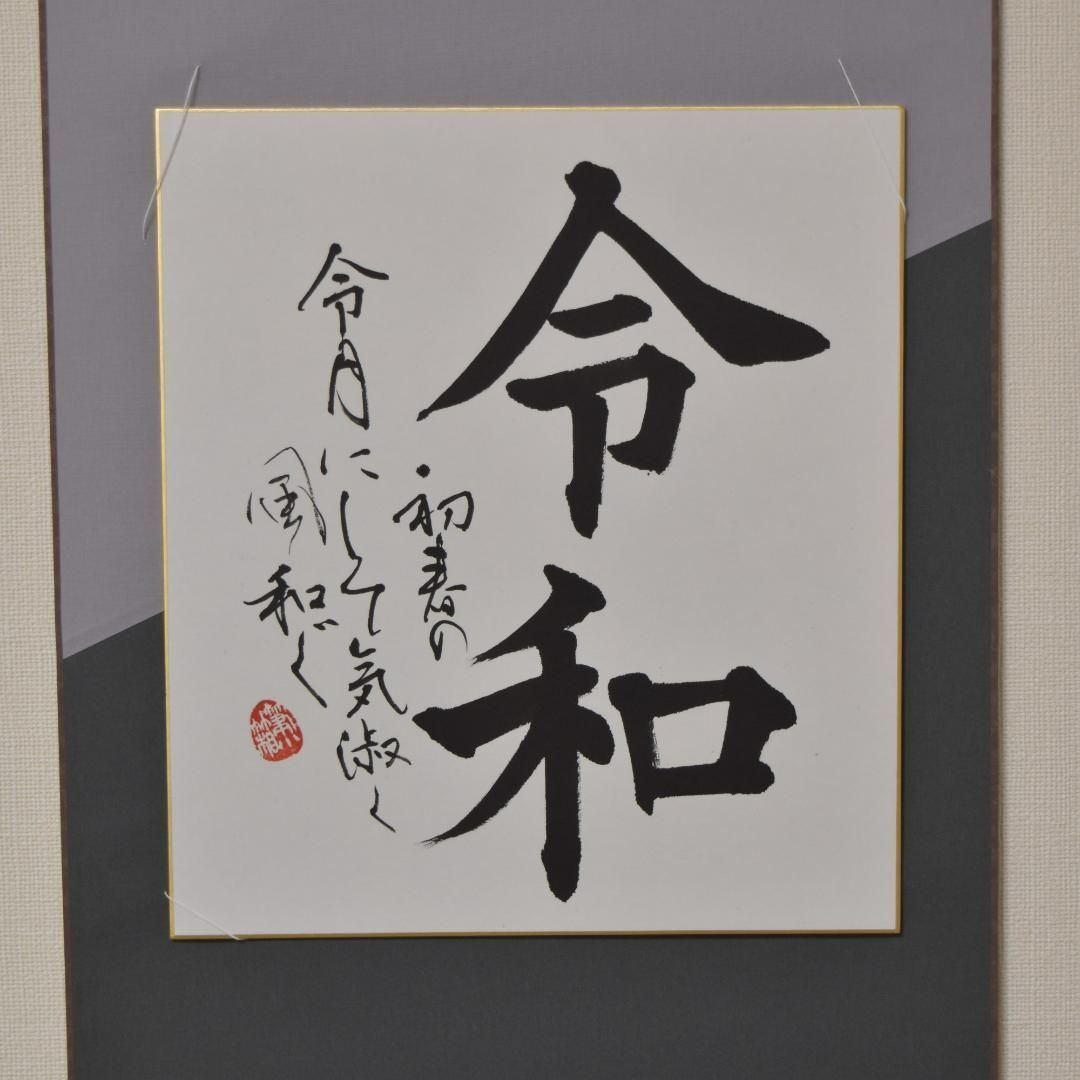 令和
・初春の
令月にして気淑く
風和ぐ